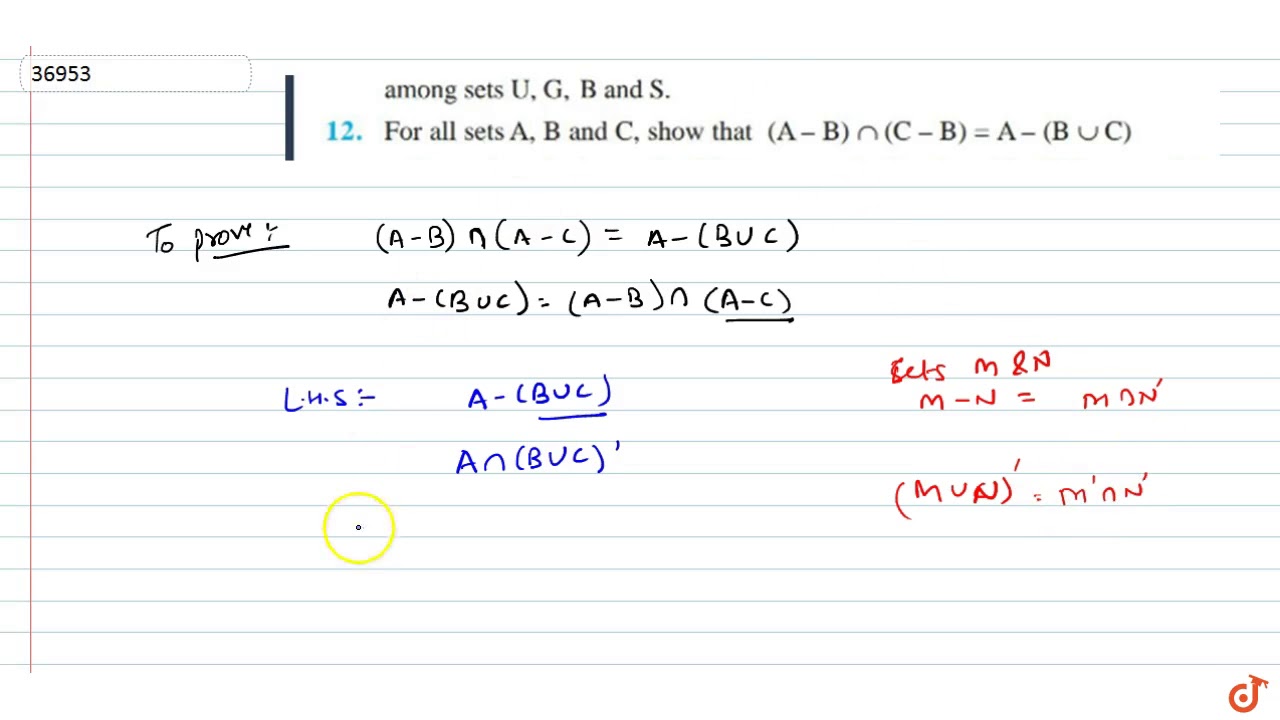 36953
among sets U, G, B and S.
12. For all sets A, B and C, show that (A – B) ∩ (C – B) = A – (B ∪ C)
To prove :- (A-B) ∩ (A-C) = A-(B∪C)
A-(B∪C) = (A-B)∩ (A-C)
Sets M & N
L.H.S :- A-(B∪C)
M-N = M∩N'
A∩(B∪C)'
(M∪N)' = M'∩N'